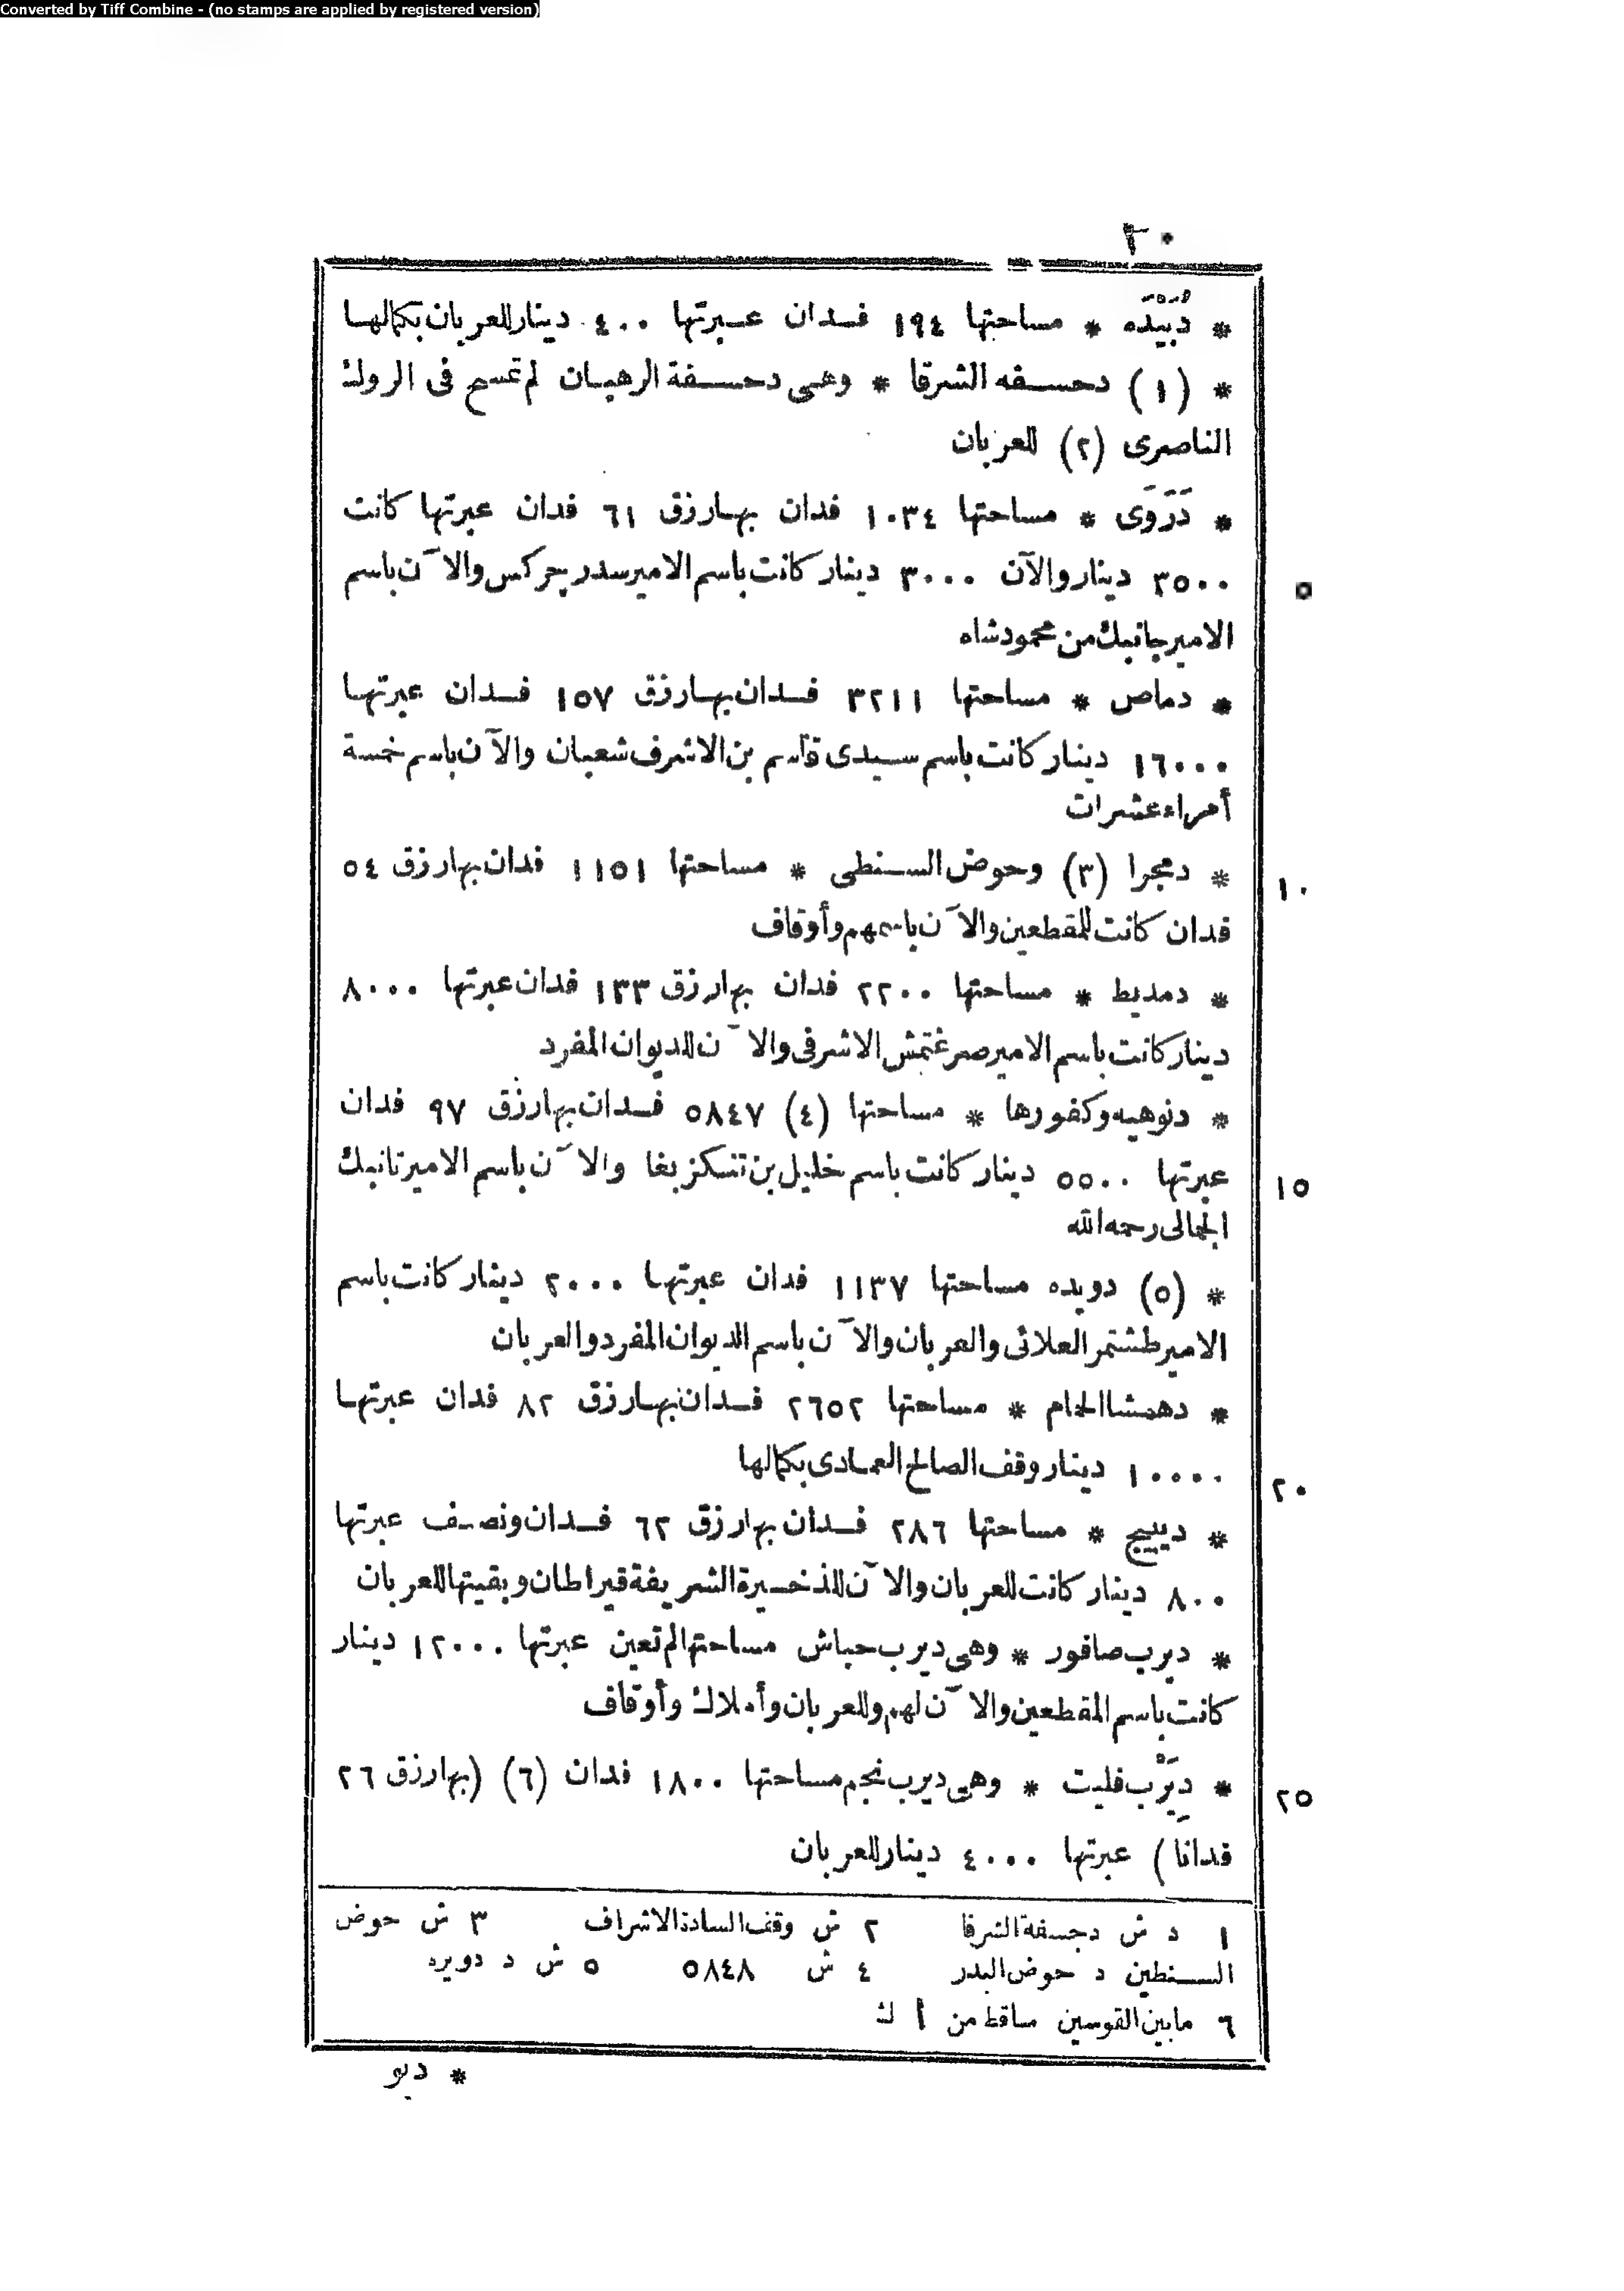 Converted by Tiff Combine - (no stamps are applied by registered version)
٣٠
* دُبَيْدَه * مساحتها ١٩٤ فدان عبرتها ٤٠٠ دينار للعربان بكمالها
* (١) دحسفه الشرقا * وهى دحسفة الرهبان لم تمسح فى الروك
الناصرى (٢) للعربان
* دَرَوَى * مساحتها ١٠٣٤ فدان بها رزق ٦١ فدان عبرتها كانت
٣٥٠٠ دينار والآن ٣٠٠٠ دينار كانت باسم الامير سدر جركس والآن باسم
٥
الامير جانبك من محمود شاه
* دماص * مساحتها ٣٢١١ فدان بها رزق ١٥٧ فدان عبرتها
١٦٠٠٠ دينار كانت باسم سيدى قاسم بن الاشرف شعبان والآن باسم خمسة
أمراء عشرات
* دمجرا (٣) وحوض السنطى * مساحتها ١١٥١ فدان بها رزق ٥٤
١٠
فدان كانت للمقطعين والآن باسمهم وأوقاف
* دمديط * مساحتها ٢٢٠٠ فدان بها رزق ١٣٣ فدان عبرتها ٨٠٠٠
دينار كانت باسم الامير صرغتمش الاشرفى والآن للديوان المفرد
* دنوهيه وكفورها * مساحتها (٤) ٥٨٤٧ فدان بها رزق ٩٧ فدان
عبرتها ٥٥٠٠ دينار كانت باسم خليل بن تنكزبغا والآن باسم الامير تانبك
١٥
الجمالى رحمه الله
* (٥) دويده مساحتها ١١٣٧ فدان عبرتها ٢٠٠٠ دينار كانت باسم
الامير طشتمر العلائى والعربان والآن باسم الديوان المفرد والعربان
* دهمشا الحمام * مساحتها ٢٦٥٢ فدان بها رزق ٨٢ فدان عبرتها
١٠٠٠٠ دينار وقف الصالح العمادى بكمالها
٢٠
* ديبيج * مساحتها ٢٨٦ فدان بها رزق ٦٢ فدان ونصف عبرتها
٨٠٠ دينار كانت للعربان والآن للذخيرة الشريفة قيراطان وبقيتها للعربان
* ديرب صافور * وهى ديرب حباش مساحتها لم تعين عبرتها ١٢٠٠٠ دينار
كانت باسم المقطعين والآن لهم وللعربان وأملاك وأوقاف
* دِيَرْب فليت * وهى ديرب نجم مساحتها ١٨٠٠ فدان (٦) (بها رزق ٢٦
٢٥
فدانا) عبرتها ٤٠٠٠ دينار للعربان
١ د ش دجسفة الشرفا ٢ ش وقف السادة الاشراف ٣ ش حوض
السنطين د حوض البدر ٤ ش ٥٨٤٨ ٥ ش د دويره
٦ مابين القوسين ساقط من أ ك
* ديو